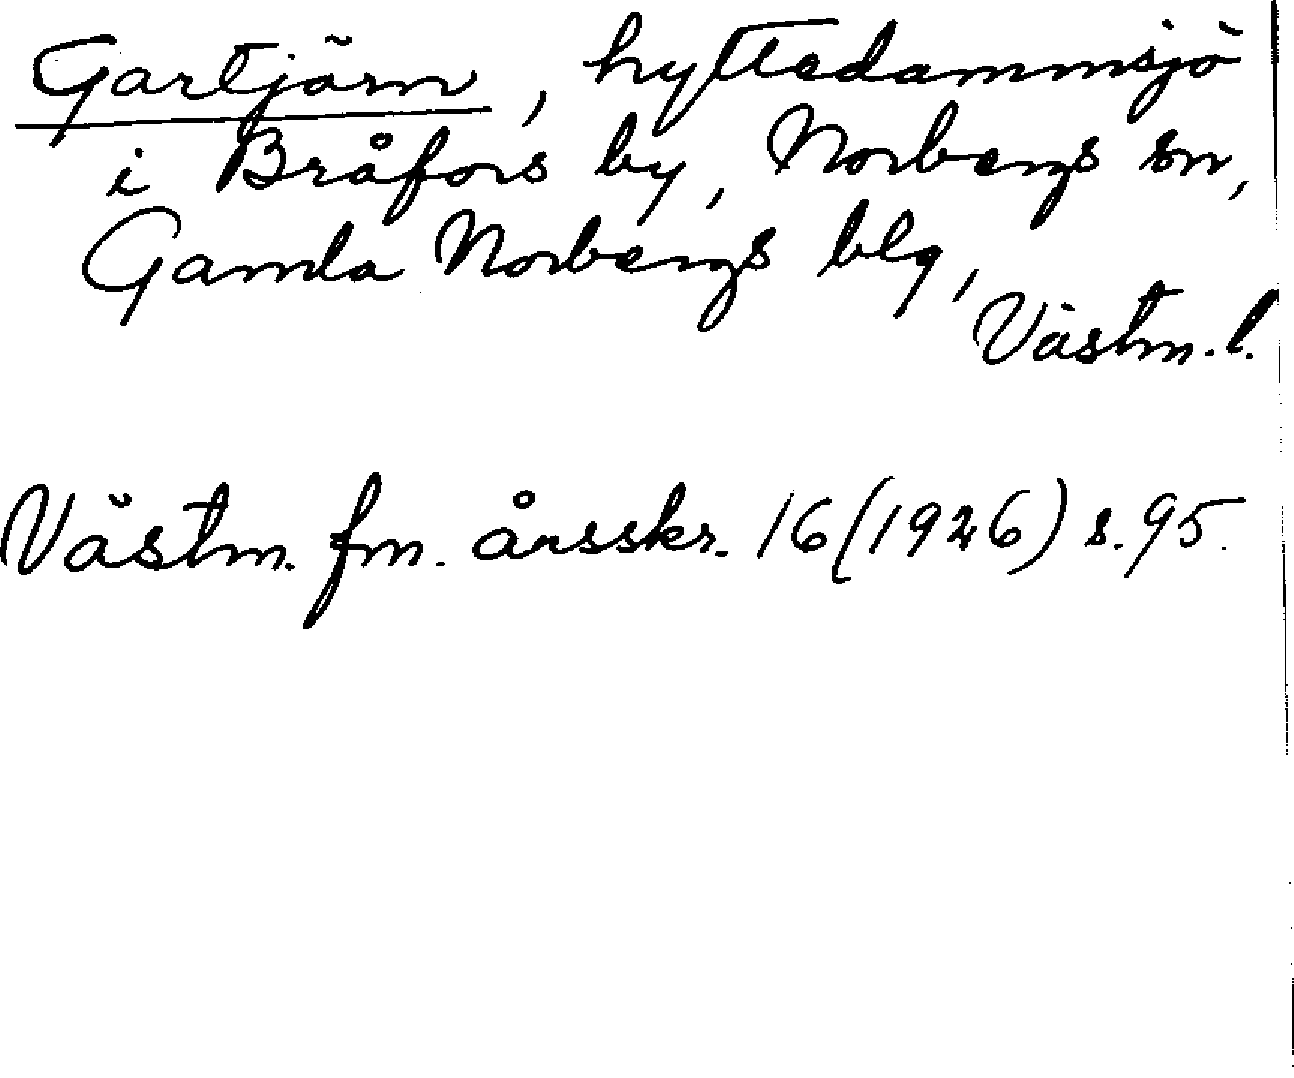 Gartjärn, hyttedammsjö
i Bråfors by, Norbergs sn,
Gamla Norbergs blg,
Västm. l.
Västm. fm. årsskr. 16 (1926) s. 95.